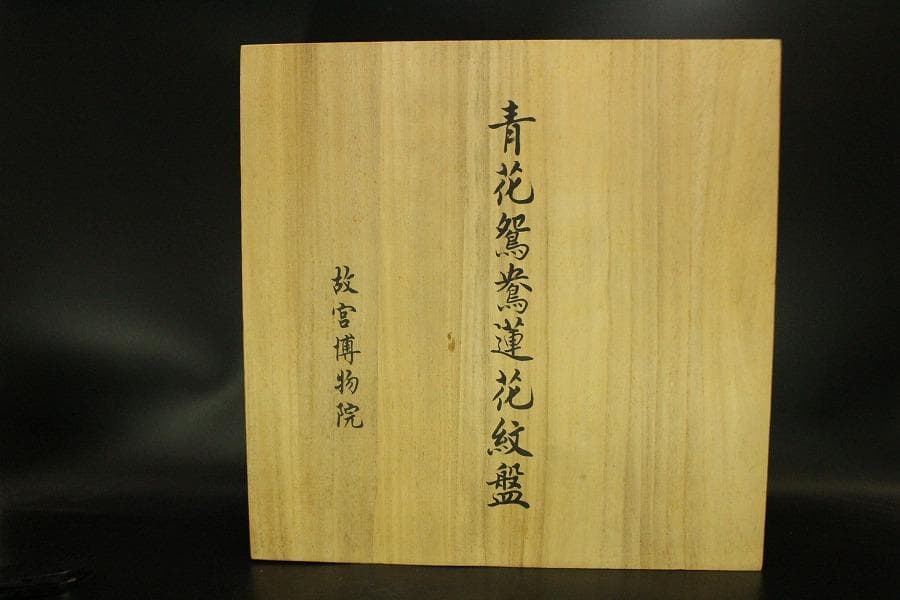 青花鴛鴦蓮花紋盤
故宮博物院